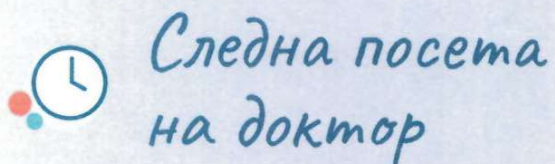 Следна посета
на доктор